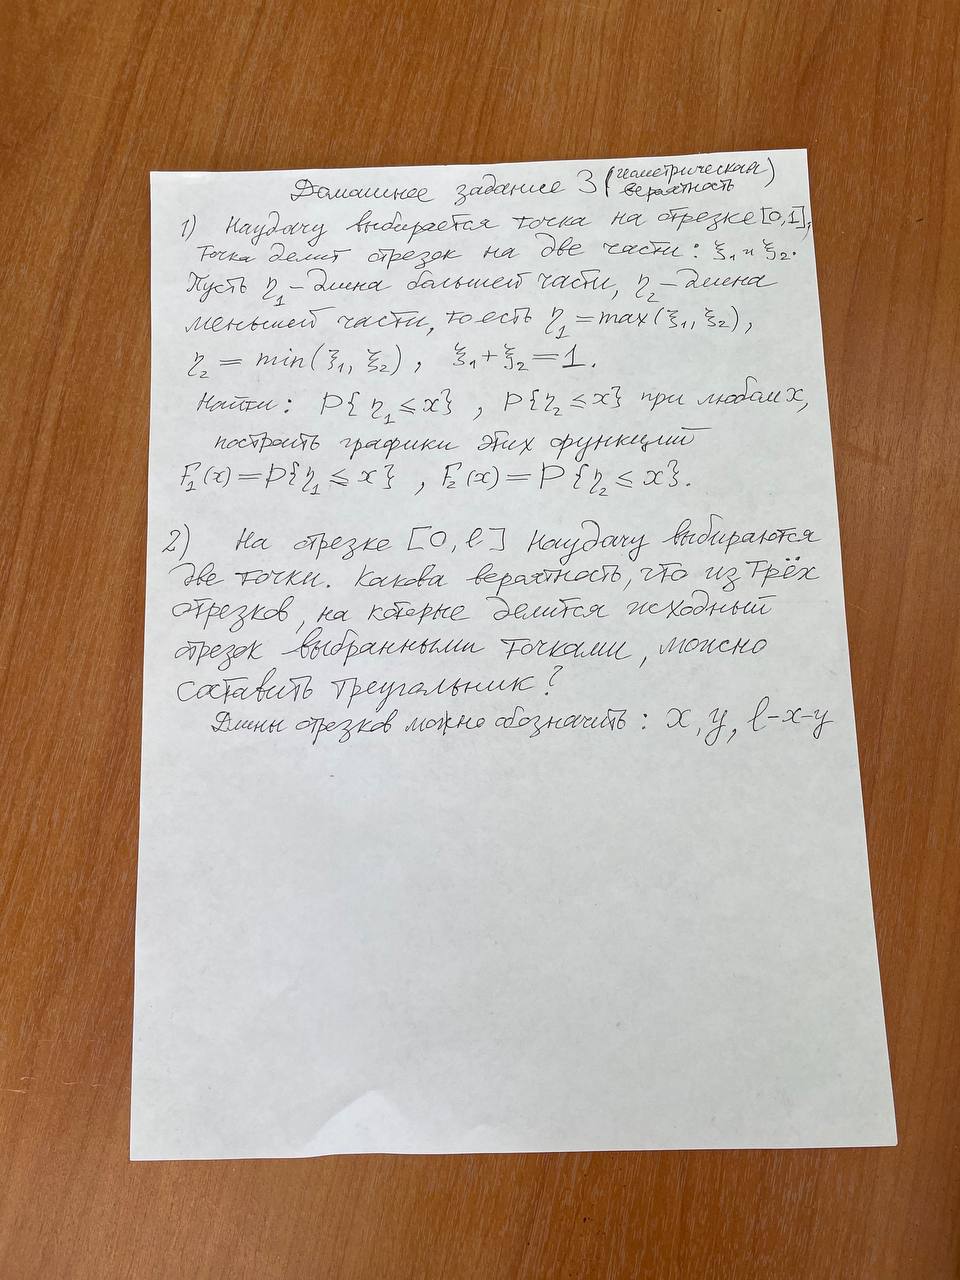 Домашнее задание 3 (геометрическая вероятность)
1) Наудачу выбирается точка на отрезке [0,1],
точка делит отрезок на две части: ξ₁ и ξ₂.
Пусть η₁ – длина большей части, η₂ – длина
меньшей части, то есть η₁ = max(ξ₁, ξ₂),
η₂ = min(ξ₁, ξ₂), ξ₁ + ξ₂ = 1.
Найти: P{η₁ ≤ x}, P{η₂ ≤ x} при любом x,
построить графики этих функций
F₁(x) = P{η₁ ≤ x}, F₂(x) = P{η₂ ≤ x}.
2) На отрезке [0, ℓ] наудачу выбираются
две точки. Какова вероятность, что из трёх
отрезков, на которые делится исходный
отрезок выбранными точками, можно
составить треугольник?
Длины отрезков можно обозначить: x, y, ℓ-x-y